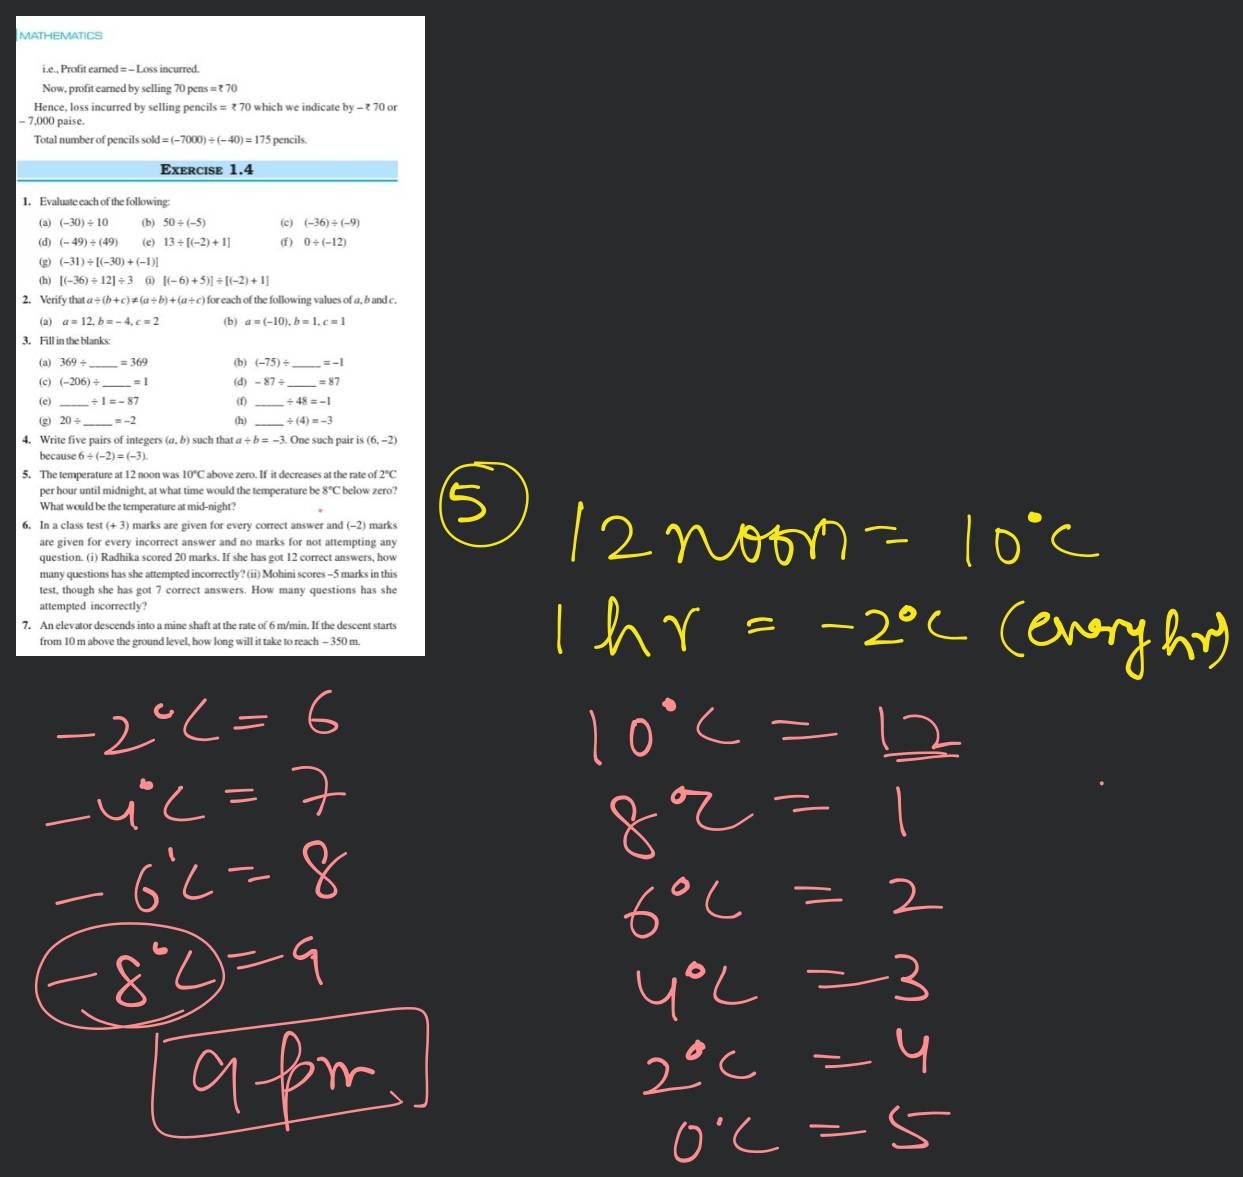 MATHEMATICS
i.e., Profit earned = – Loss incurred.
Now, profit earned by selling 70 pens = ₹ 70
Hence, loss incurred by selling pencils = ₹ 70 which we indicate by – ₹ 70 or
– 7,000 paise.
Total number of pencils sold = (–7000) ÷ (– 40) = 175 pencils.
EXERCISE 1.4
1. Evaluate each of the following:
(a) (–30) ÷ 10 (b) 50 ÷ (–5) (c) (–36) ÷ (–9)
(d) (– 49) ÷ (49) (e) 13 ÷ [(–2) + 1] (f) 0 ÷ (–12)
(g) (–31) ÷ [(–30) + (–1)]
(h) [(–36) ÷ 12] ÷ 3 (i) [(– 6) + 5)] ÷ [(–2) + 1]
2. Verify that a ÷ (b + c) ≠ (a ÷ b) + (a ÷ c) for each of the following values of a, b and c.
(a) a = 12, b = – 4, c = 2 (b) a = (–10), b = 1, c = 1
3. Fill in the blanks:
(a) 369 ÷ _____ = 369 (b) (–75) ÷ _____ = –1
(c) (–206) ÷ _____ = 1 (d) – 87 ÷ _____ = 87
(e) _____ ÷ 1 = – 87 (f) _____ ÷ 48 = –1
(g) 20 ÷ _____ = –2 (h) _____ ÷ (4) = –3
4. Write five pairs of integers (a, b) such that a ÷ b = –3. One such pair is (6, –2)
because 6 ÷ (–2) = (–3).
5. The temperature at 12 noon was 10°C above zero. If it decreases at the rate of 2°C
per hour until midnight, at what time would the temperature be 8°C below zero?
What would be the temperature at mid-night?
6. In a class test (+ 3) marks are given for every correct answer and (–2) marks
are given for every incorrect answer and no marks for not attempting any
question. (i) Radhika scored 20 marks. If she has got 12 correct answers, how
many questions has she attempted incorrectly? (ii) Mohini scores –5 marks in this
test, though she has got 7 correct answers. How many questions has she
attempted incorrectly?
7. An elevator descends into a mine shaft at the rate of 6 m/min. If the descent starts
from 10 m above the ground level, how long will it take to reach – 350 m.
5
12 noon = 10°C
1 hr = -2°C (every hr)
10°C = 12
8°C = 1
6°C = 2
4°C = 3
2°C = 4
0°C = 5
-2°C = 6
-4°C = 7
-6°C = 8
-8°C = 9
9 pm